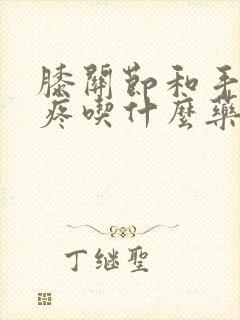 膝關節和手
疼喫什麼藥
丁继聖